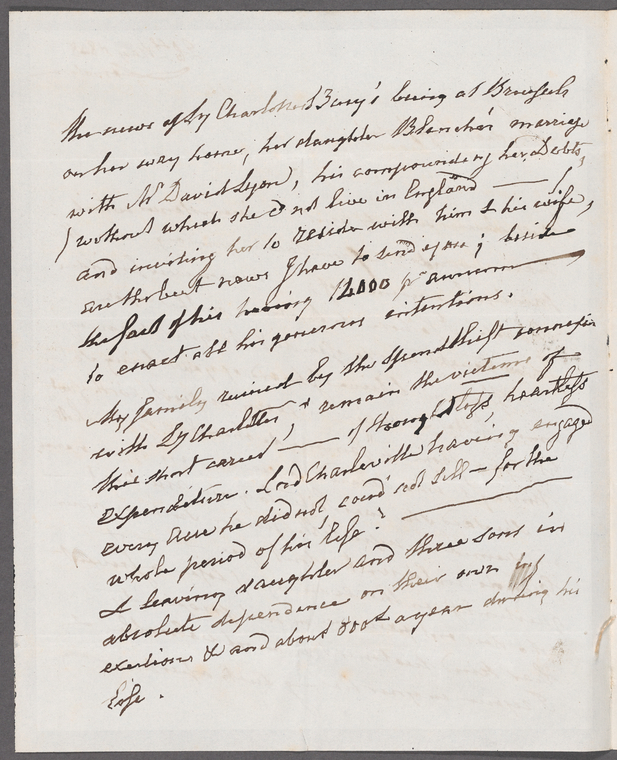 The news of Ly Charlotte Bury's being at Brussels
on her way home, her daughter Blanche's marriage
with Mr David Lyon, his compounding her Debts,
/ without which she cd not live in England —
and inviting her to reside with him & his wife,
are the best news I have to send you; beside
the fact of his having 14000 pr annum —
to enact all his generous intentions.
My family ruined by the spendthrift connexion
with Ly Charlotte, & remain the victims of
this short career — of thoughtless heartless
expenditure. Lord Charleville having engaged
every acre he did not & could not sell — for the
whole period of his life! —
& leaving daughter and three sons in
absolute dependance on their own
exertions & and about 800£ a year during his
Life.